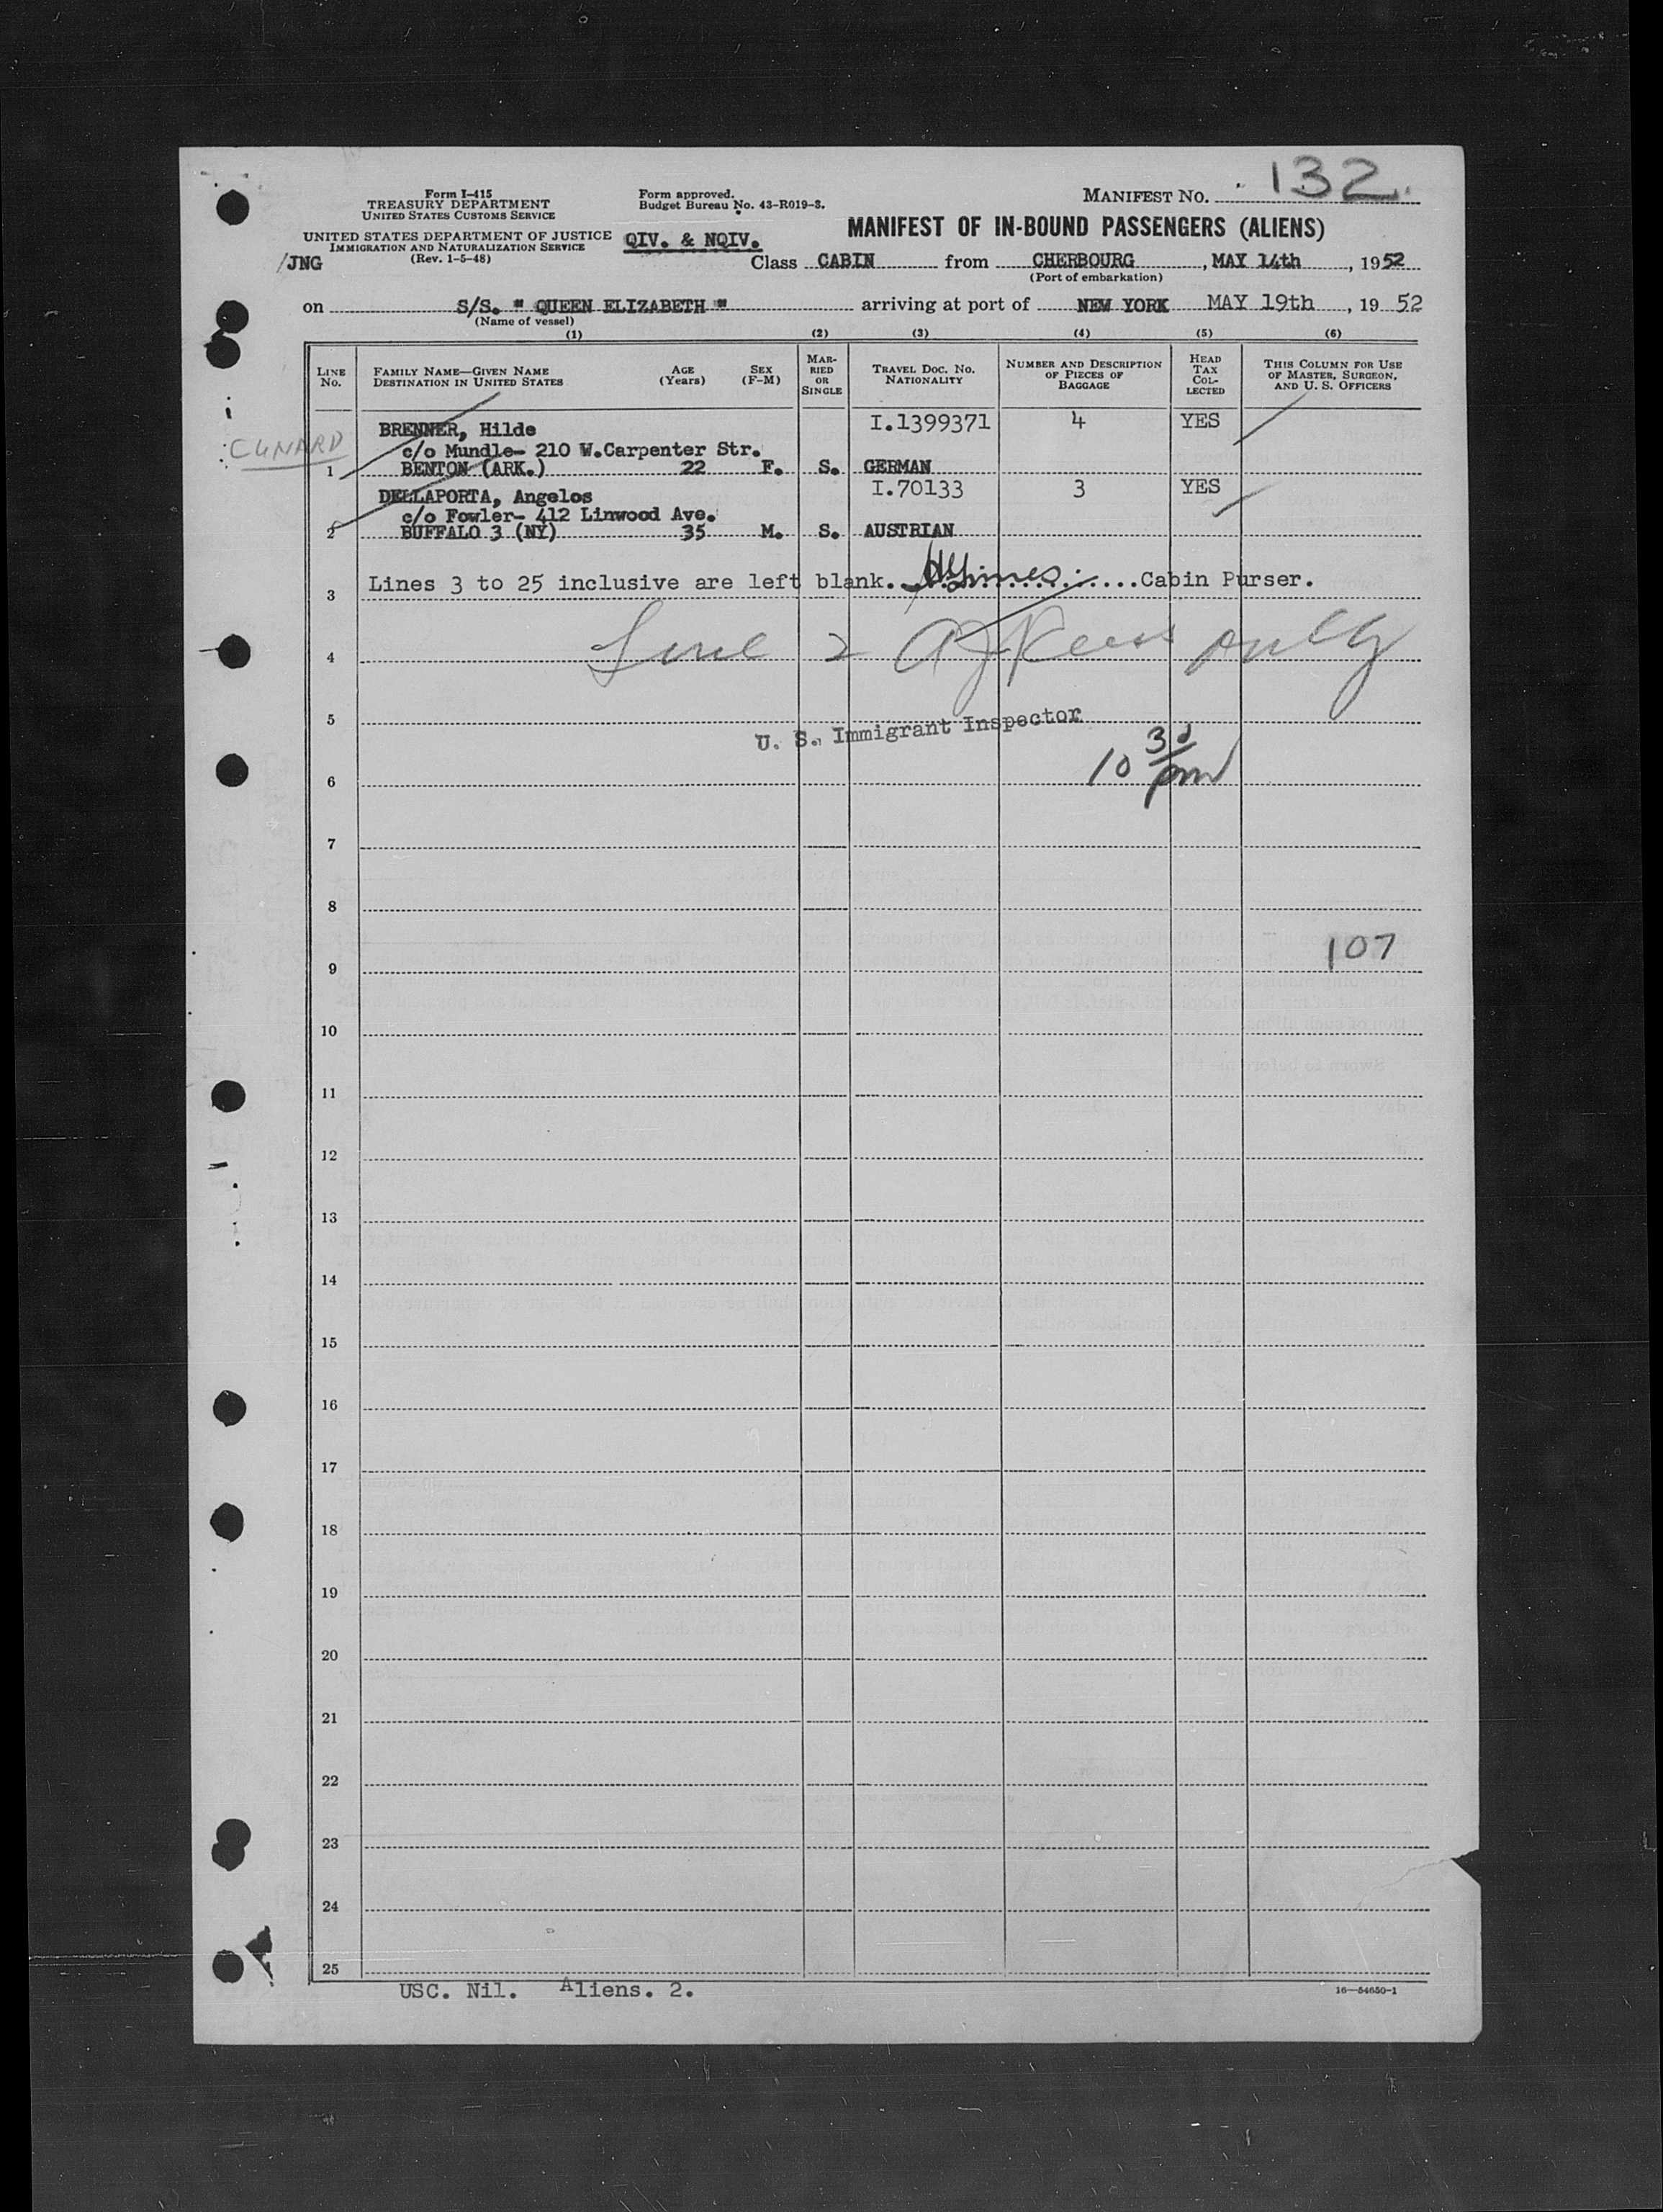 Form I-415
TREASURY DEPARTMENT
UNITED STATES CUSTOMS SERVICE
UNITED STATES DEPARTMENT OF JUSTICE
IMMIGRATION AND NATURALIZATION SERVICE
(Rev. 1-5-48)
/JNG
Form approved.
Budget Bureau No. 43-R019-3.
QIV. & NQIV.
MANIFEST NO. 132
MANIFEST OF IN-BOUND PASSENGERS (ALIENS)
Class CABIN from CHERBOURG, MAY 14th, 1952
(Port of embarkation)
on S/S. " QUEEN ELIZABETH " arriving at port of NEW YORK MAY 19th, 1952
(Name of vessel)
(1) (2) (3) (4) (5) (6)
LINE NO.
FAMILY NAME—GIVEN NAME
DESTINATION IN UNITED STATES
AGE (Years)
SEX (F-M)
MARRIED OR SINGLE
TRAVEL DOC. NO.
NATIONALITY
NUMBER AND DESCRIPTION OF PIECES OF BAGGAGE
HEAD TAX COLLECTED
THIS COLUMN FOR USE OF MASTER, SURGEON, AND U. S. OFFICERS
CUNARD
BRENNER, Hilde I.1399371 4 YES
c/o Mundle- 210 W.Carpenter Str.
1 BENTON (ARK.) 22 F. S. GERMAN
DELLAPORTA, Angelos I.70133 3 YES
c/o Fowler- 412 Linwood Ave.
2 BUFFALO 3 (NY) 35 M. S. AUSTRIAN
3 Lines 3 to 25 inclusive are left blank. Cabin Purser.
4 Line 2 only
5
U. S. Immigrant Inspector
10 30 pm
6
7
8
107
9
10
11
12
13
14
15
16
17
18
19
20
21
22
23
24
25
USC. Nil. Aliens. 2.
16—54650-1